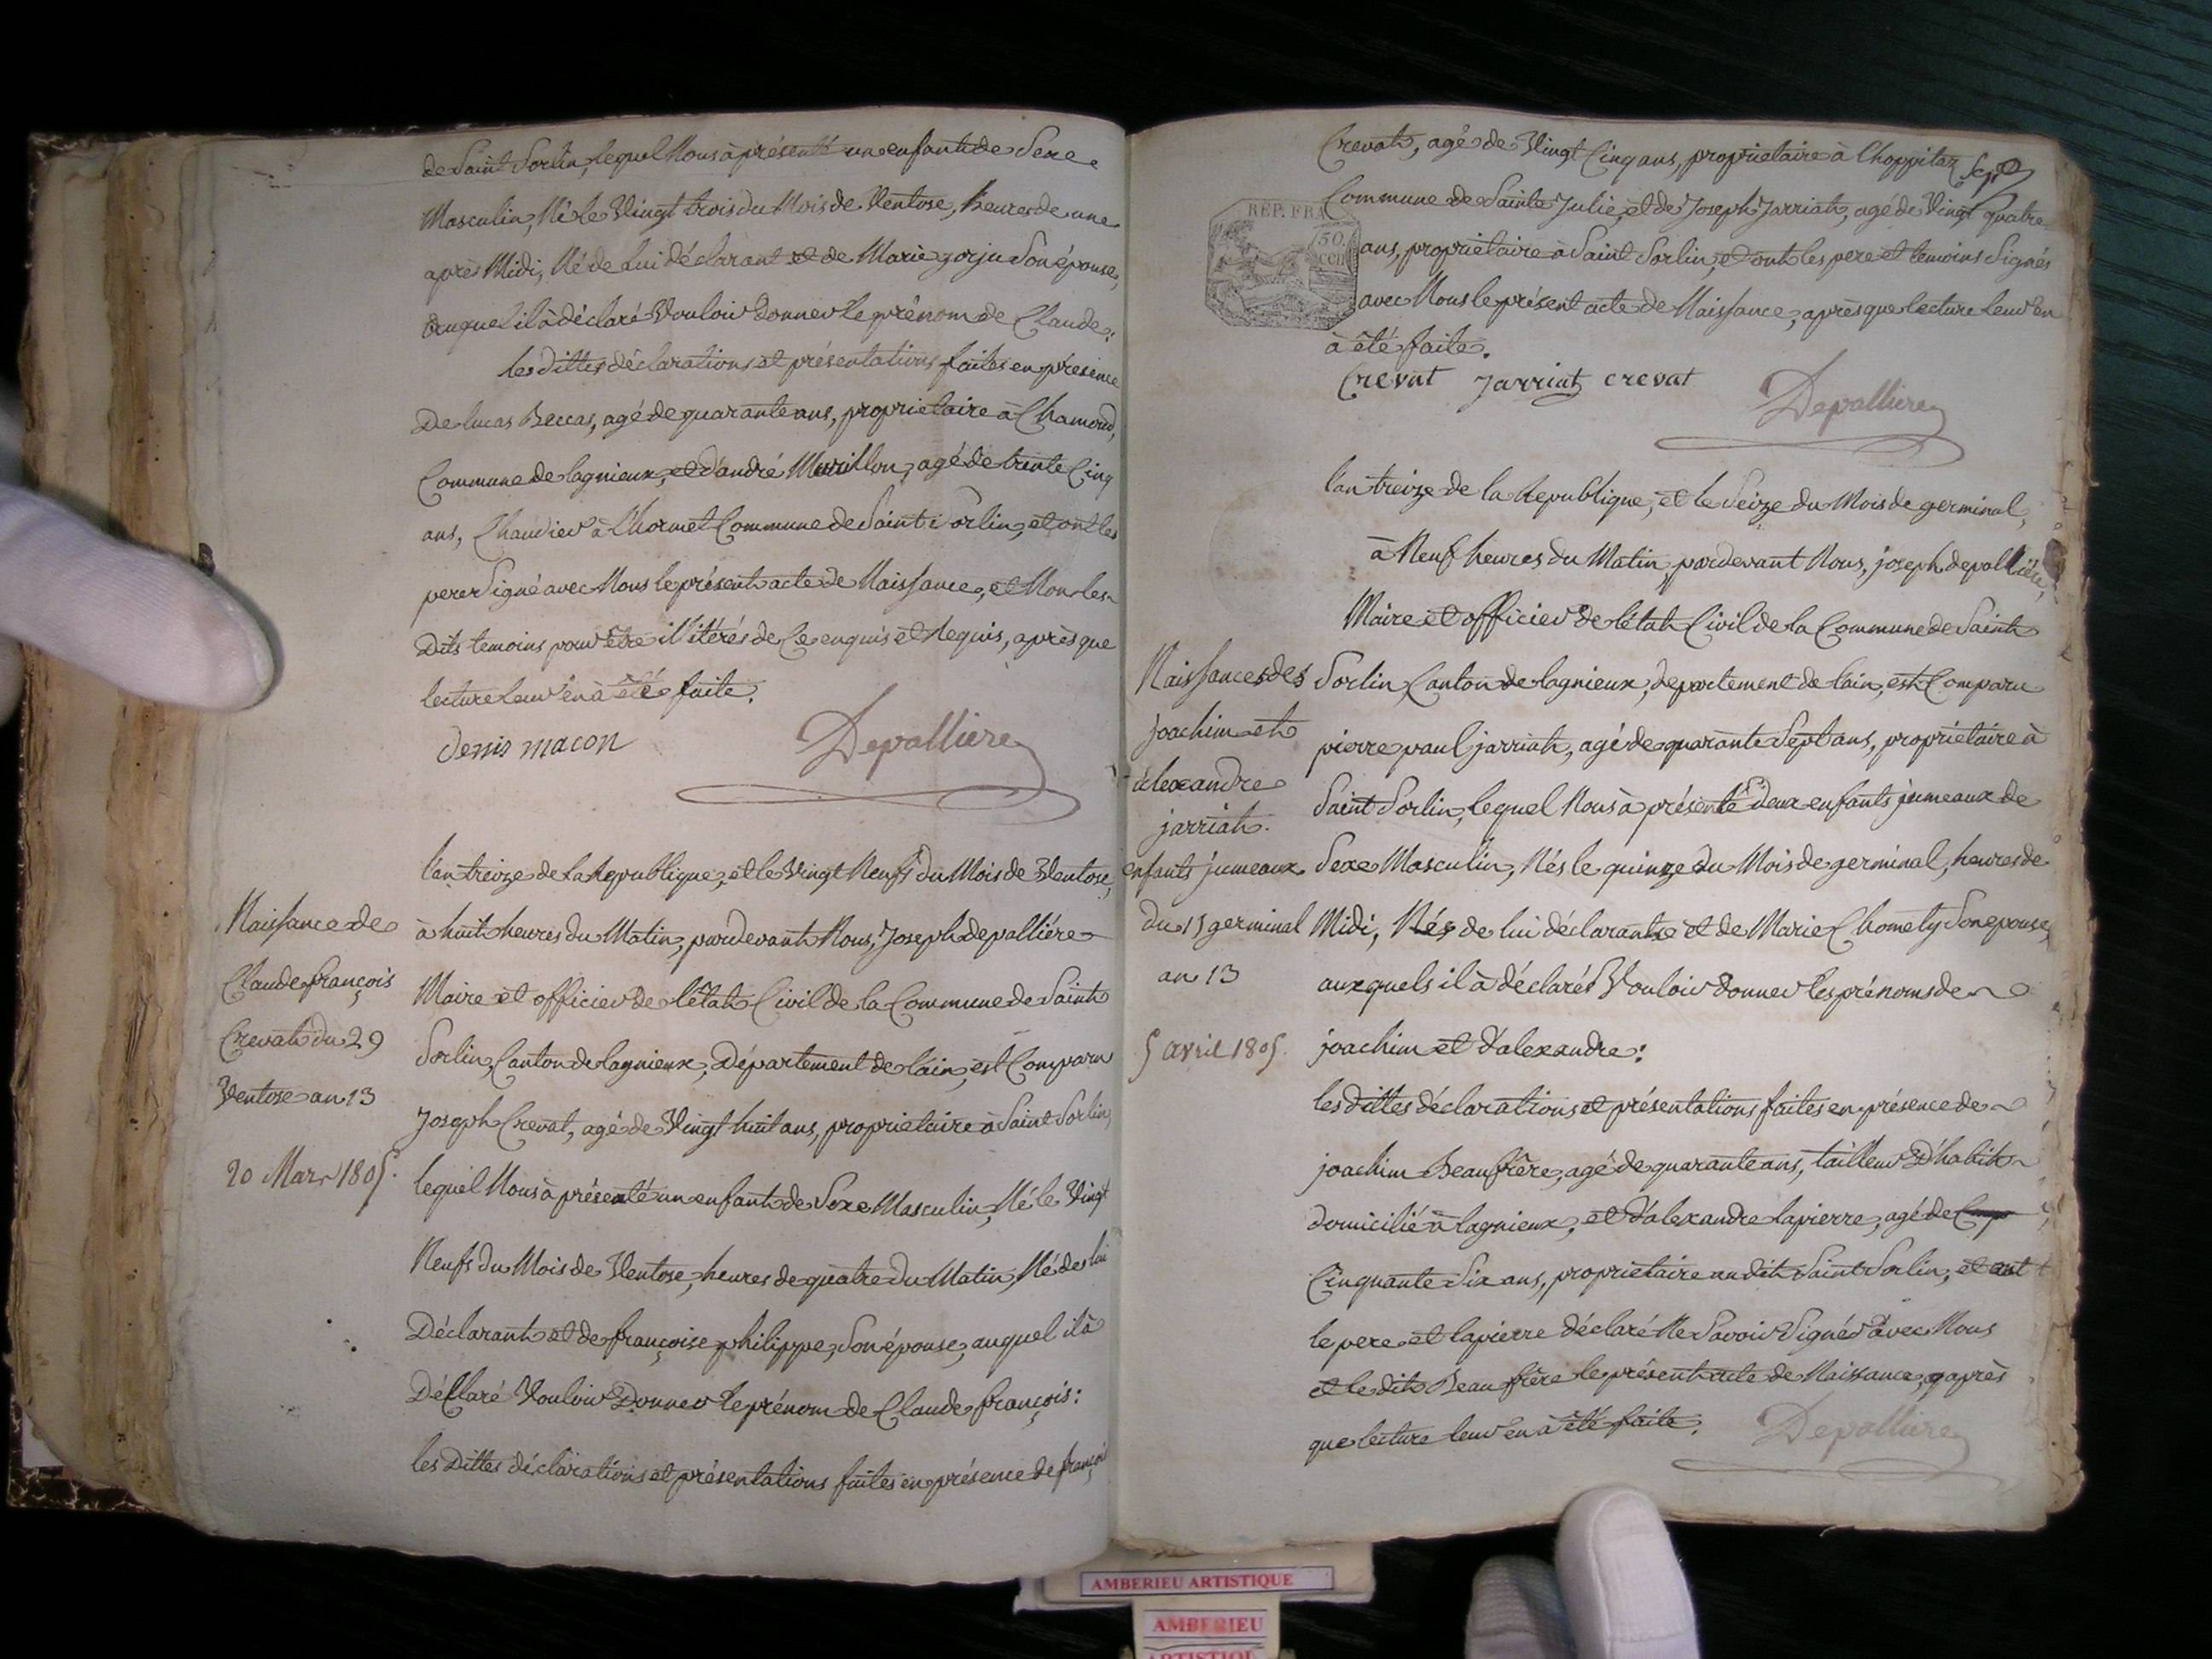 de Saint Sorlin, lequel Nous à présenté un enfant de Sexe
Masculin, Né le Vingt trois du Mois de Ventose, heures de une
après Midi, Né de Lui déclarant et de Marie gorju Son épouse,
auquel il à déclaré Vouloir Donner le prénom de Claude:
les dittes déclarations et présentations faites en présence
De lucas Beccas, agé de quarante ans, propriétaire à Chamoud,
Commune de lagnieux, et d'andré Murillon, agé de trente Cinq
ans, à Commune de Saint Sorlin, et ont les
perer Signé avec Nous le présent acte de Naissance, et Non les
Dits temoins pour être illitérés de Ce enquis et Requis, après que
lecture leur en à été faite.
denis macon Depalliere
l'an treize de la Republique, et le Vingt Neufs du Mois de Ventose,
à huit heures du Matin, pardevant Nous, Joseph depalliére
Maire et officier de l'état Civil de la Commune de Saint
Sorlin, Canton de lagnieux, Département de l'ain, est Comparu
Joseph Crevat, agé de Vingt huit ans, propriétaire à Saint Sorlin,
lequel Nous à présenté un enfant de Sexe Masculin, Né le Vingt
Neufs du Mois de Ventose, heures de quatre du Matin, Né de lui
Déclarant et de françoise philippe, Son épouse, auquel il à
Déclaré Vouloir Donner le prénom de Claude françois:
les Dittes déclarations et présentations faites en présence de françois
Naissance de
Claude françois
Crevat du 29
Ventose an 13
20 Mars 1805.
Crevat, agé de Vingt Cinq ans, propriétaire à Choppitaz
Commune de Sainte Julie, et de Joseph Jarriat, agé de Vingt quatre
REP. FRA
50.
cen
ans, propriétaire à Saint Sorlin, et ont les pere et temoins Signés
avec Nous le présent acte de Naissance, après que lecture leur en
à été faite.
Crevat Jarriat crevat
Depalliere
l'an treize de la Republique, et le Seize du Mois de germinal,
à Neuf heures du Matin, pardevant Nous, joseph depalliére,
Maire et officier de l'état Civil de la Commune de Saint
Sorlin, Canton de lagnieux, departement de lain, est Comparu
pierre paul jarriat, agé de quarante Sept ans, propriétaire à
Saint Sorlin, lequel Nous à présenté deux enfants jumeaux de
Sexe Masculin, Nés le quinze du Mois de germinal, heures de
Midi, Nés de lui déclarant et de Marie Chomety Son epouse,
auxquels il à déclarés Vouloir donner les prénoms de
joachim et d'alexandre:
les dittes déclarations et présentations faites en présence de
joachim Beaufrère, agé de quarante ans, tailleur D'habit
domicilié à lagnieux, et d'alexandre lapierre, agé de
Cinquante Six ans, propriétaire au dit Saint Sorlin, et ont
le pere et lapierre déclaré Ne Savoir Signés avec Nous
et le dit Beaufrère le présent acte de Naissance, après
que lecture leur en à été faite. Depalliere
Naissances des
joachim et
alexandre
jarriat.
enfants jumeaux
du 15 germinal
an 13
5 avril 1805.
AMBERIEU ARTISTIQUE
AMBERIEU
ARTISTIQU